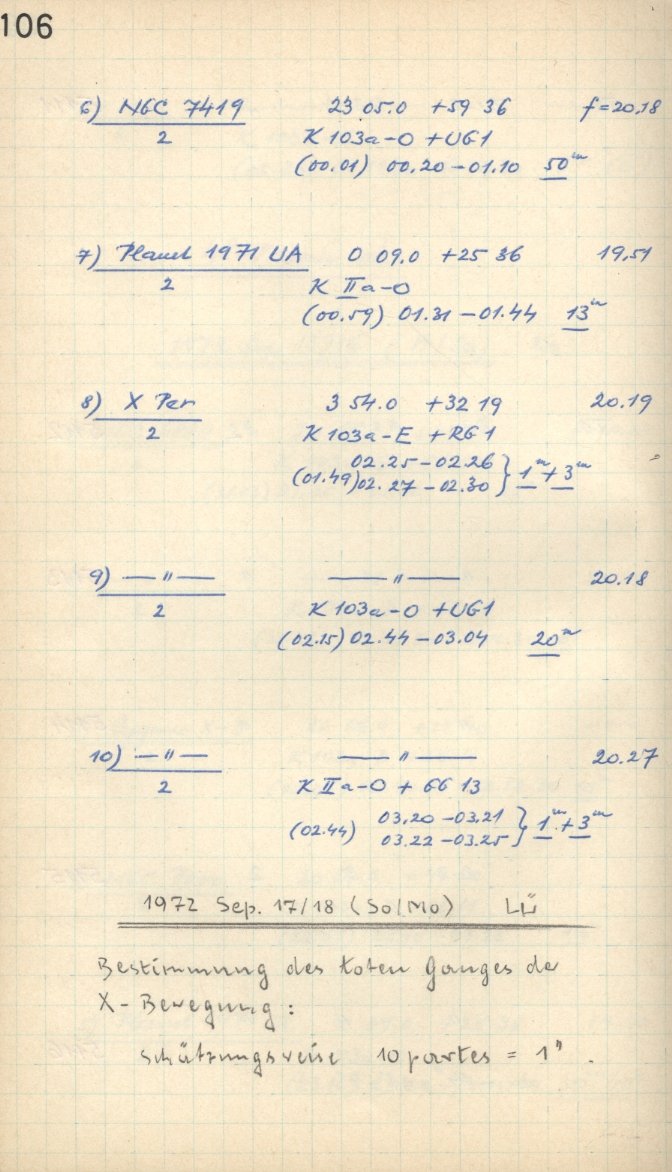 106
6) NGC 7419 23 05.0 +59 36 f=20,18
2 K 103a-O +UG1
(00.01) 00.20-01.10 50m
7) Planet 1971 UA 0 09,0 +25 36 19,51
2 K IIa-O
(00.59) 01.31-01.44 13m
8) X Per 3 54.0 +32 19 20.19
2 K 103a-E +RG1
02.25-02.26
(01.49) 02.27-02.30 } 1m+3m
9) —"— —"— 20.18
2 K 103a-O +UG1
(02.15) 02.44-03.04 20m
10) —"— —"— 20.27
2 K IIa-O + GG 13
03.20-03.21
(02.44) 03.22-03.25 } 1m+3m
1972 Sep. 17/18 (So/Mo) LÜ
Bestimmung des toten Ganges der
X-Bewegung:
schätzungsweise 10 partes = 1" .